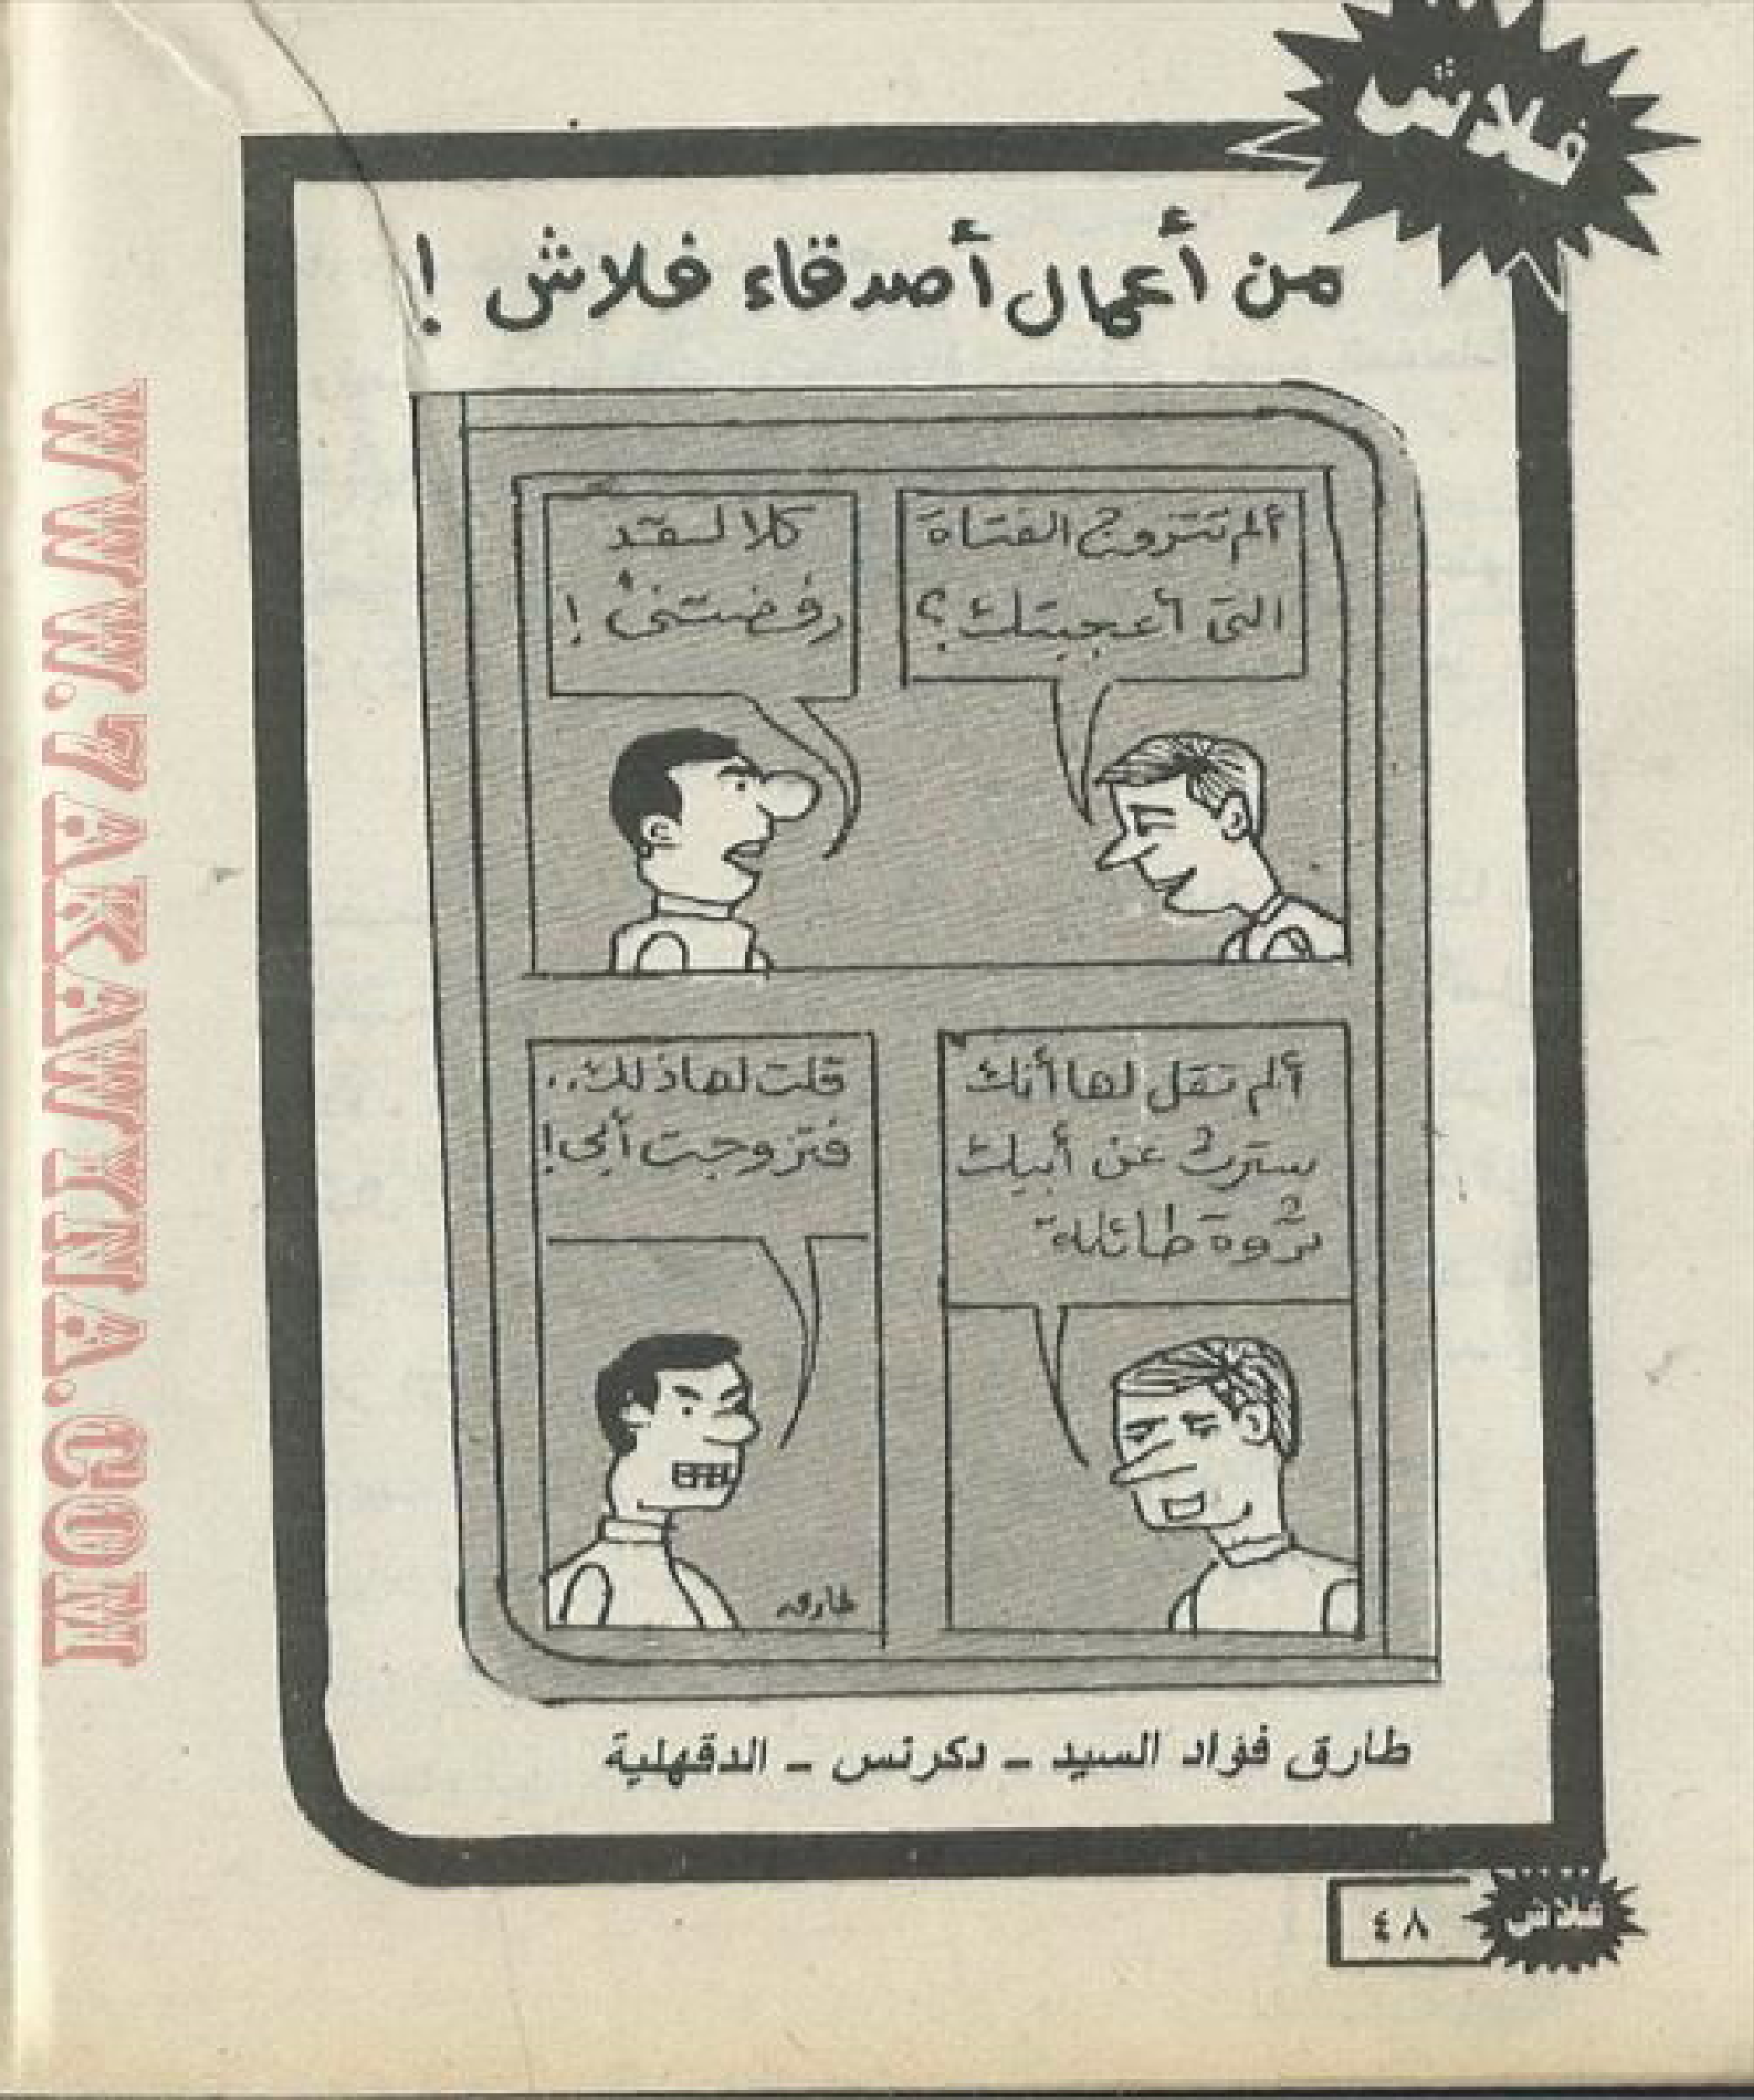 فلاش
من أعمال أصدقاء فلاش !
ألم تتزوج الفتاة
التى أعجبتك ؟
كلا لقد
رفضتنى !
ألم تقل لها أنك
سترث عن أبيك
ثروة طائلة
قلت لها ذلك..
فتزوجت أبى !
طارق
طارق فؤاد السيد - دكرنس - الدقهلية
فلاش
٤٨